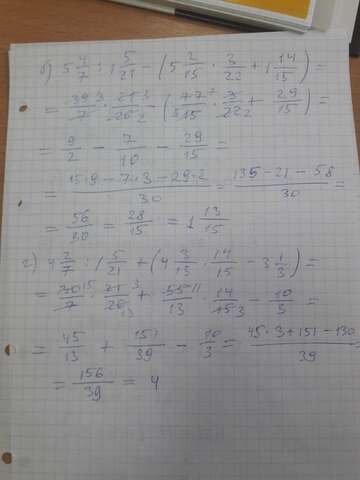 б) 5 4/7 : 1 5/21 − (5 2/15 · 3/22 + 1 14/15) =
= 39 3/7 · 21 3/26 2 − (77 7/5 15 · 3/22 2 + 29/15) =
= 9/2 − 7/10 − 29/15 =
= (15·9 − 7·3 − 29·2)/30 = (135 − 21 − 58)/30 =
= 56/30 = 28/15 = 1 13/15
г) 4 2/7 : 1 5/21 + (4 3/13 · 14/15 − 3 1/3) =
= 30 15/7 · 21 3/26 13 + 55 11/13 · 14/15 3 − 10/3 =
= 45/13 + 151/39 − 10/3 = (45·3 + 151 − 130)/39
= 156/39 = 4